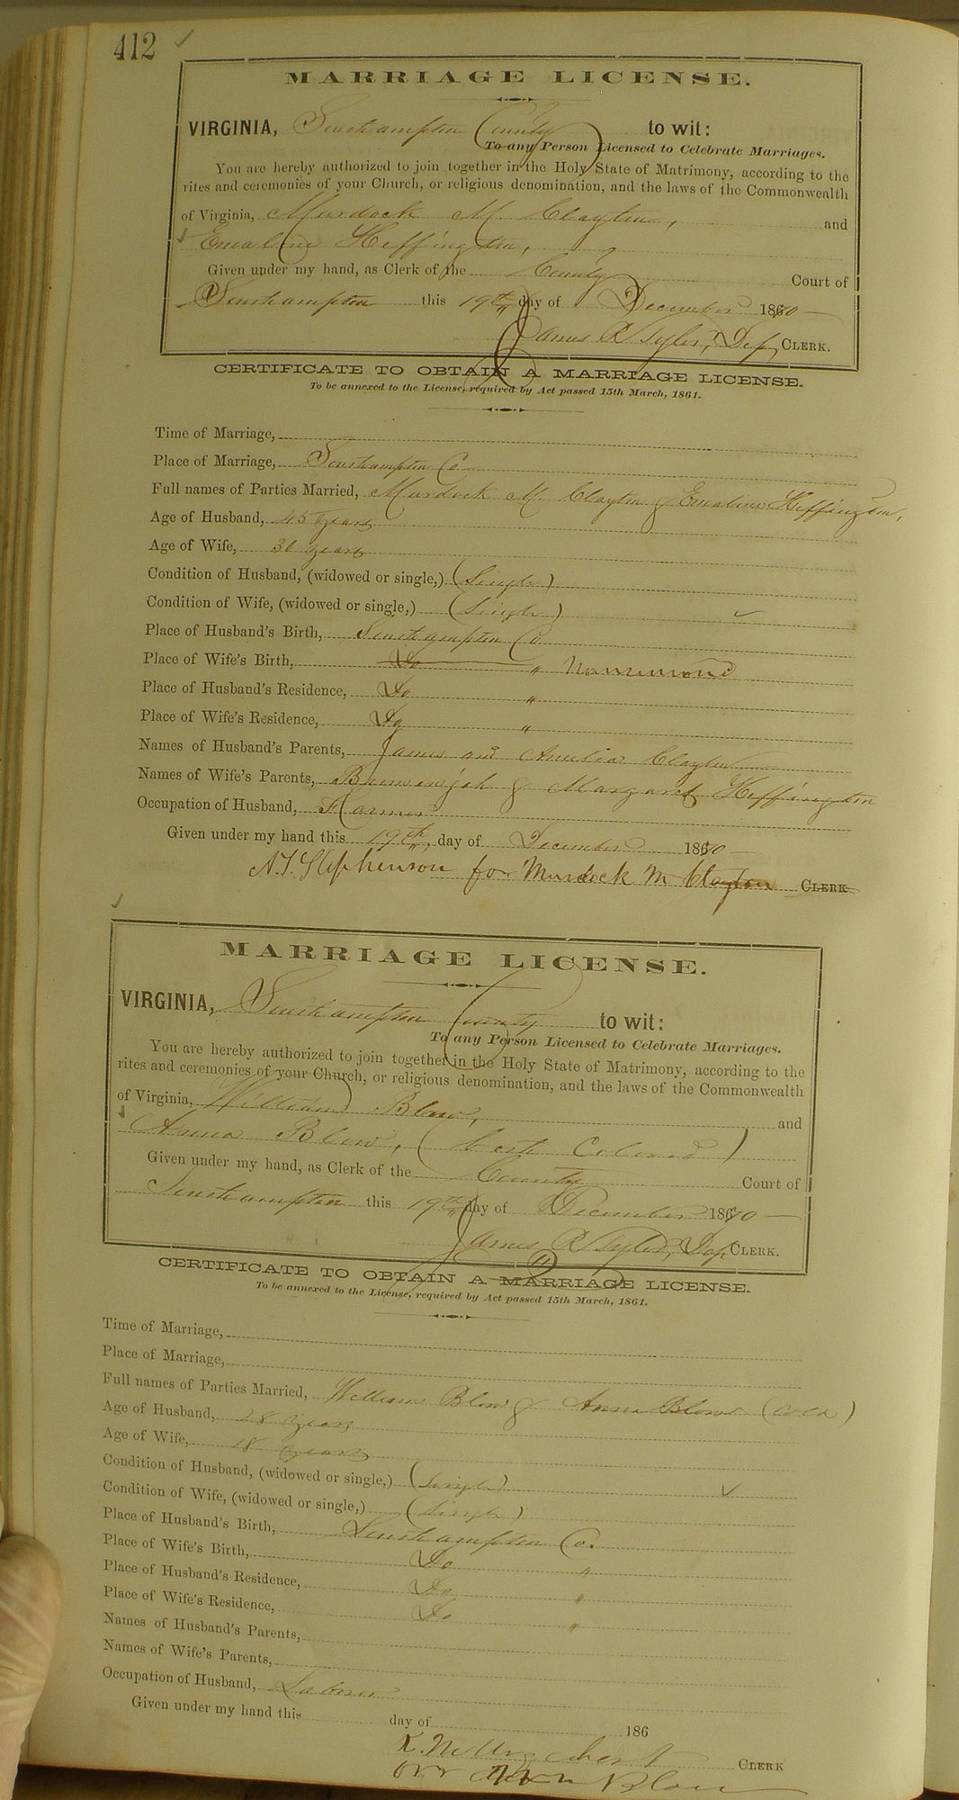 412
MARRIAGE LICENSE.
VIRGINIA, Southampton County to wit:
To any Person Licensed to Celebrate Marriages.
You are hereby authorized to join together in the Holy State of Matrimony, according to the
rites and ceremonies of your Church, or religious denomination, and the laws of the Commonwealth
of Virginia, Murdock M. Clayton, and
Emaline Heffington,
Given under my hand, as Clerk of the County Court of
Southampton this 19th day of December 1870
James R Tyler, Dep CLERK.
CERTIFICATE TO OBTAIN A MARRIAGE LICENSE.
To be annexed to the License, required by Act passed 15th March, 1861.
Time of Marriage,
Place of Marriage, Southampton Co
Full names of Parties Married, Murdock M. Clayton & Emaline Heffington,
Age of Husband, 45 years
Age of Wife, 30 years
Condition of Husband, (widowed or single,) (Single)
Condition of Wife, (widowed or single,) (Single)
Place of Husband's Birth, Southampton Co
Place of Wife's Birth, Do " Nansemond
Place of Husband's Residence, Do "
Place of Wife's Residence, Do "
Names of Husband's Parents, James and Amelia Clayton
Names of Wife's Parents, & Margaret Heffington
Occupation of Husband, Farmer
Given under my hand this 19th day of December 1870
Stephenson for Murdock M Clayton CLERK
MARRIAGE LICENSE.
VIRGINIA, Southampton County to wit:
To any Person Licensed to Celebrate Marriages.
You are hereby authorized to join together in the Holy State of Matrimony, according to the
rites and ceremonies of your Church, or religious denomination, and the laws of the Commonwealth
of Virginia, William Blow, and
Anna Blow, (both Colored)
Given under my hand, as Clerk of the County Court of
Southampton this 19th day of December 1870
James R Tyler, Dep CLERK.
CERTIFICATE TO OBTAIN A MARRIAGE LICENSE.
To be annexed to the License, required by Act passed 15th March, 1861.
Time of Marriage,
Place of Marriage,
Full names of Parties Married, William Blow & Anna Blow (Cold)
Age of Husband, 28 years
Age of Wife, 18 years
Condition of Husband, (widowed or single,) (Single)
Condition of Wife, (widowed or single,) (Single)
Place of Husband's Birth, Southampton Co.
Place of Wife's Birth, Do "
Place of Husband's Residence, Do "
Place of Wife's Residence, Do "
Names of Husband's Parents,
Names of Wife's Parents,
Occupation of Husband, Laborer
Given under my hand this day of 186
CLERK
Blow